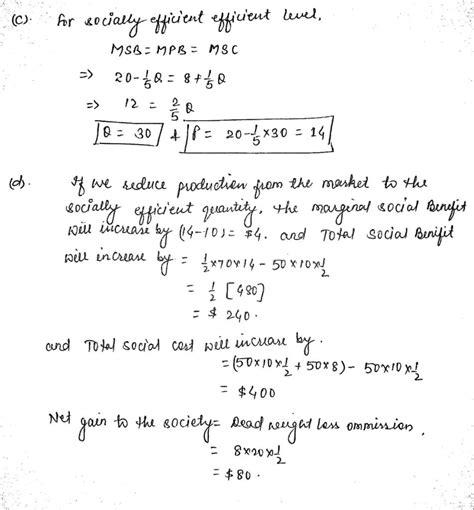 (c). For socially efficient efficient level,
MSB = MPB = MSC
⇒ 20 - 1/5 Q = 8 + 1/5 Q
⇒ 12 = 2/5 Q
Q = 30 & P = 20 - 1/5 × 30 = 14
(d). If we reduce production from the market to the
socially efficient quantity, the marginal social Benefit
will increase by (14-10) = $4. and Total Social Benifit
will increase by = 1/2 × 70 × 14 - 50 × 10 × 1/2
= 1/2 [480]
= $ 240.
and Total social cost will increase by.
= (50×10×1/2 + 50×8) - 50×10×1/2
= $400
Net gain to the society = Dead weight loss ommission.
= 8×20×1/2
= $80.